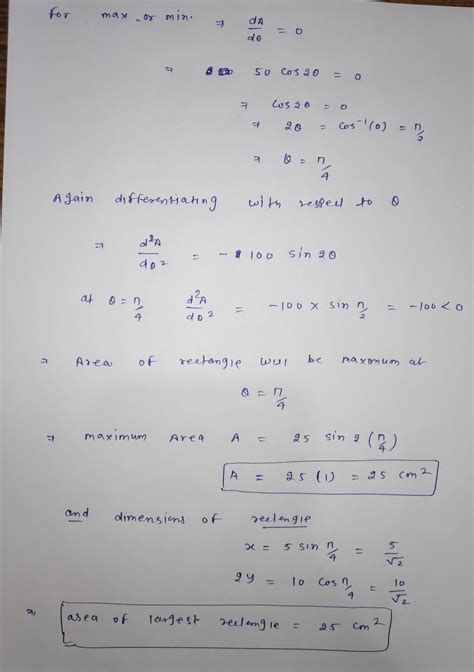 for max. or min. ⇒ dA/dθ = 0
⇒ 50 cos 2θ = 0
⇒ cos 2θ = 0
⇒ 2θ = cos⁻¹(0) = π/2
⇒ θ = π/4
Again differentiating with respect to θ
⇒ d²A/dθ² = -100 sin 2θ
at θ = π/4 d²A/dθ² = -100 × sin π/2 = -100 < 0
⇒ Area of rectangle will be maximum at
θ = π/4
⇒ maximum Area A = 25 sin 2 (π/4)
A = 25 (1) = 25 cm²
and dimensions of rectengle
x = 5 sin π/4 = 5/√2
2y = 10 cos π/4 = 10/√2
⇒, area of largest rectengle = 25 cm²